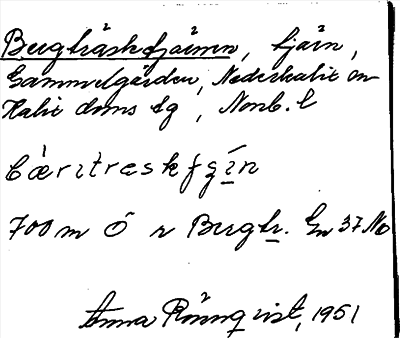 Bergträskfjärnen, tjärn,
Gammelgården, Nederkalix sn
Kalix doms sg, Norrb. l
bæ̀rıtreskfʒín
700 m Ö n Bergtr. Gn 37 No
Anna Rönnqvist, 1951